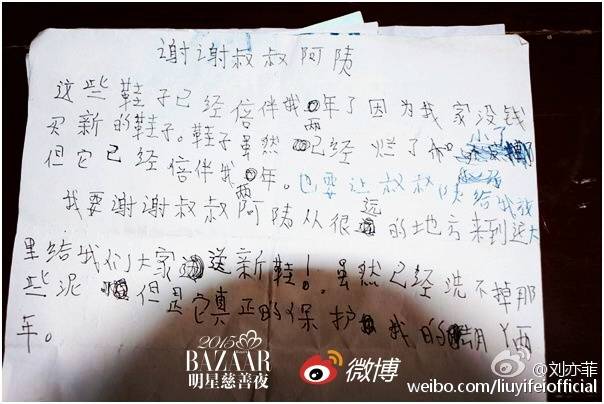 谢谢叔叔阿姨
这些鞋子已经倍伴我两年了因为我家没钱
买新的鞋子。鞋子虽然已经烂了和小了
但它已经倍伴我两年。也要让叔叔
我要谢谢叔叔阿姨从很远的地方来到这大
里给我们大家送新鞋!虽然已经洗不掉那
些泥但是它真正的保护我的脚丫两
年。
2015
BAZAAR
明星慈善夜
微博
@刘亦菲
weibo.com/liuyifeiofficial